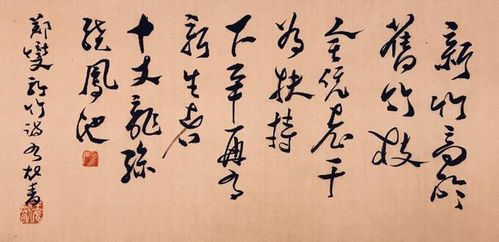 新竹高於
舊竹枝
全凭老干
为扶持
下年再有
新生者
十丈龍孫
繞鳳池
鄭燮新竹詩書